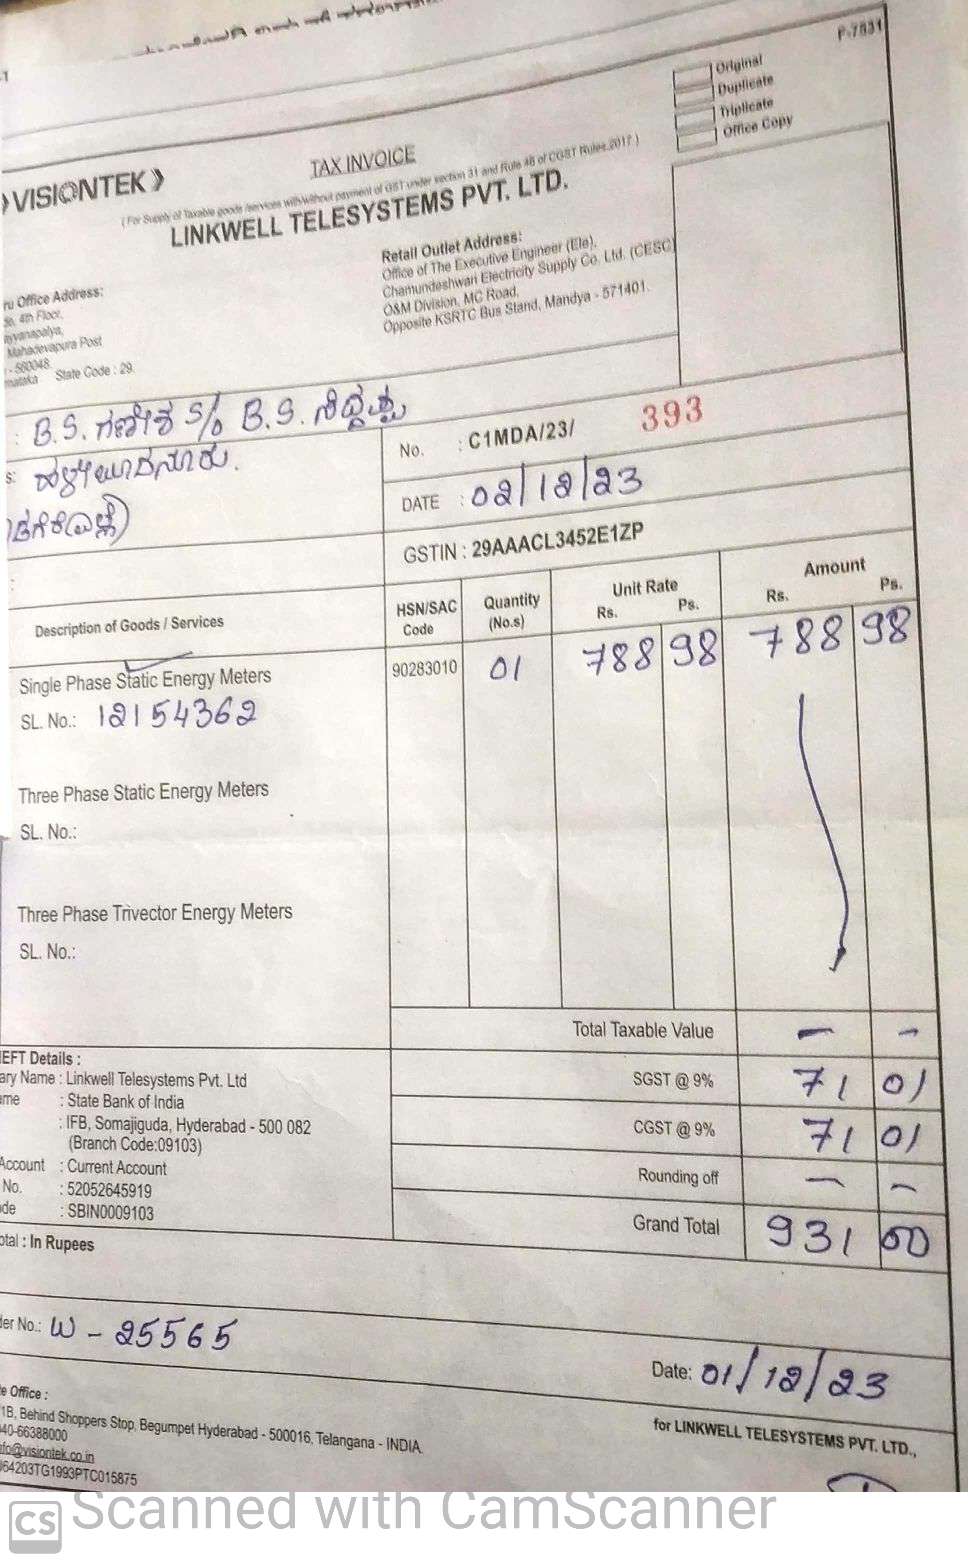 P-7831
Original
Duplicate
Triplicate
Office Copy
VISIONTEK
TAX INVOICE
(For Supply of Taxable goods /services with/without payment of GST under section 31 and Rule 46 of CGST Rules,2017 )
LINKWELL TELESYSTEMS PVT. LTD.
ru Office Address:
4th Floor,
Mahadevapura Post
- 560048.
nataka State Code : 29.
Retail Outlet Address:
Office of The Executive Engineer (Ele),
Chamundeshwari Electricity Supply Co. Ltd. (CESC)
O&M Division, MC Road,
Opposite KSRTC Bus Stand, Mandya - 571401.
: B.S. ಗಣೇಶ S/o B.S. ಸಿದ್ದಪ್ಪ
s:
No. : C1MDA/23/ 393
DATE : 02/12/23
GSTIN : 29AAACL3452E1ZP
Description of Goods / Services HSN/SAC Code Quantity (No.s) Unit Rate Rs. Ps. Amount Rs. Ps.
Single Phase Static Energy Meters 90283010 01 788 98 788 98
SL. No.: 12154362
Three Phase Static Energy Meters
SL. No.:
Three Phase Trivector Energy Meters
SL. No.:
Total Taxable Value — -
EFT Details :
ary Name : Linkwell Telesystems Pvt. Ltd
SGST @ 9% 71 01
me : State Bank of India
: IFB, Somajiguda, Hyderabad - 500 082
(Branch Code:09103)
CGST @ 9% 71 01
Account : Current Account
Rounding off — -
No. : 52052645919
de : SBIN0009103
Grand Total 931 00
otal : In Rupees
der No.: W - 25565
Date: 01/12/23
e Office :
1B, Behind Shoppers Stop, Begumpet Hyderabad - 500016, Telangana - INDIA.
40-66388000
nfo@visiontek.co.in
64203TG1993PTC015875
for LINKWELL TELESYSTEMS PVT. LTD.,
CS Scanned with CamScanner